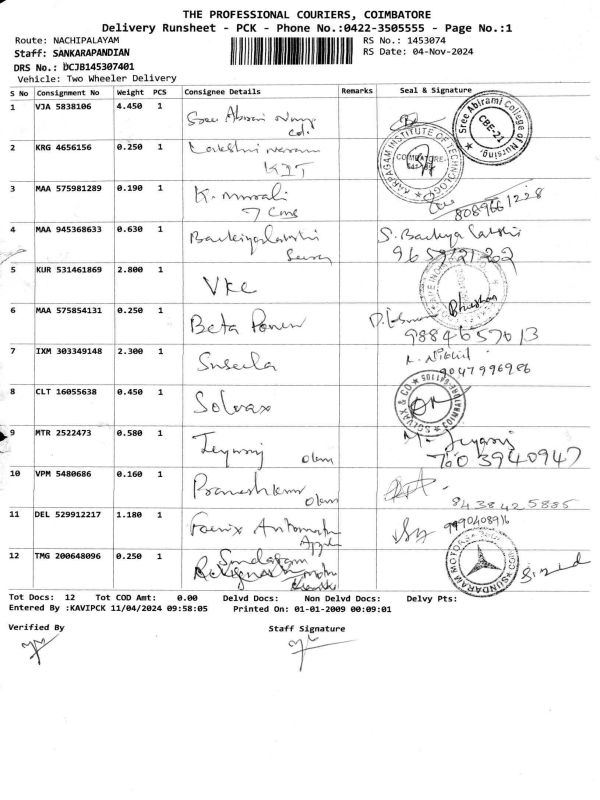 THE PROFESSIONAL COURIERS, COIMBATORE
Delivery Runsheet - PCK - Phone No.:0422-3505555 - Page No.:1
Route: NACHIPALAYAM RS No.: 1453074
Staff: SANKARAPANDIAN RS Date: 04-Nov-2024
DRS No.: DCJB145307401
Vehicle: Two Wheeler Delivery
S No Consignment No Weight PCS Consignee Details Remarks Seal & Signature
1 VJA 5838106 4.450 1 Sree Abirami Sree Abirami College of Nursing. CBE-21
2 KRG 4656156 0.250 1 KIT KARPAGAM INSTITUTE OF TECHNOLOGY COIMBATORE-
3 MAA 575981289 0.190 1 K. Murali 8089661228
4 MAA 945368633 0.630 1 S. Backya Lakshi
9659721202
5 KUR 531461869 2.800 1 VKC
6 MAA 575854131 0.250 1 Beta Power Bhushan
9884657013
7 IXM 303349148 2.300 1 Suseela 9047996986
8 CLT 16055638 0.450 1 Solvax SOLVAX & CO COIMBATORE
9 MTR 2522473 0.580 1 Jeyaraj M. Jeyaraj
10 VPM 5480686 0.160 1 8438425885
11 DEL 529912217 1.180 1 Foenix Automation 9990408916
12 TMG 200648096 0.250 1 Sundaram Motors SUNDARAM MOTORS
Tot Docs: 12 Tot COD Amt: 0.00 Delvd Docs: Non Delvd Docs: Delvy Pts:
Entered By :KAVIPCK 11/04/2024 09:58:05 Printed On: 01-01-2009 00:09:01
Verified By Staff Signature